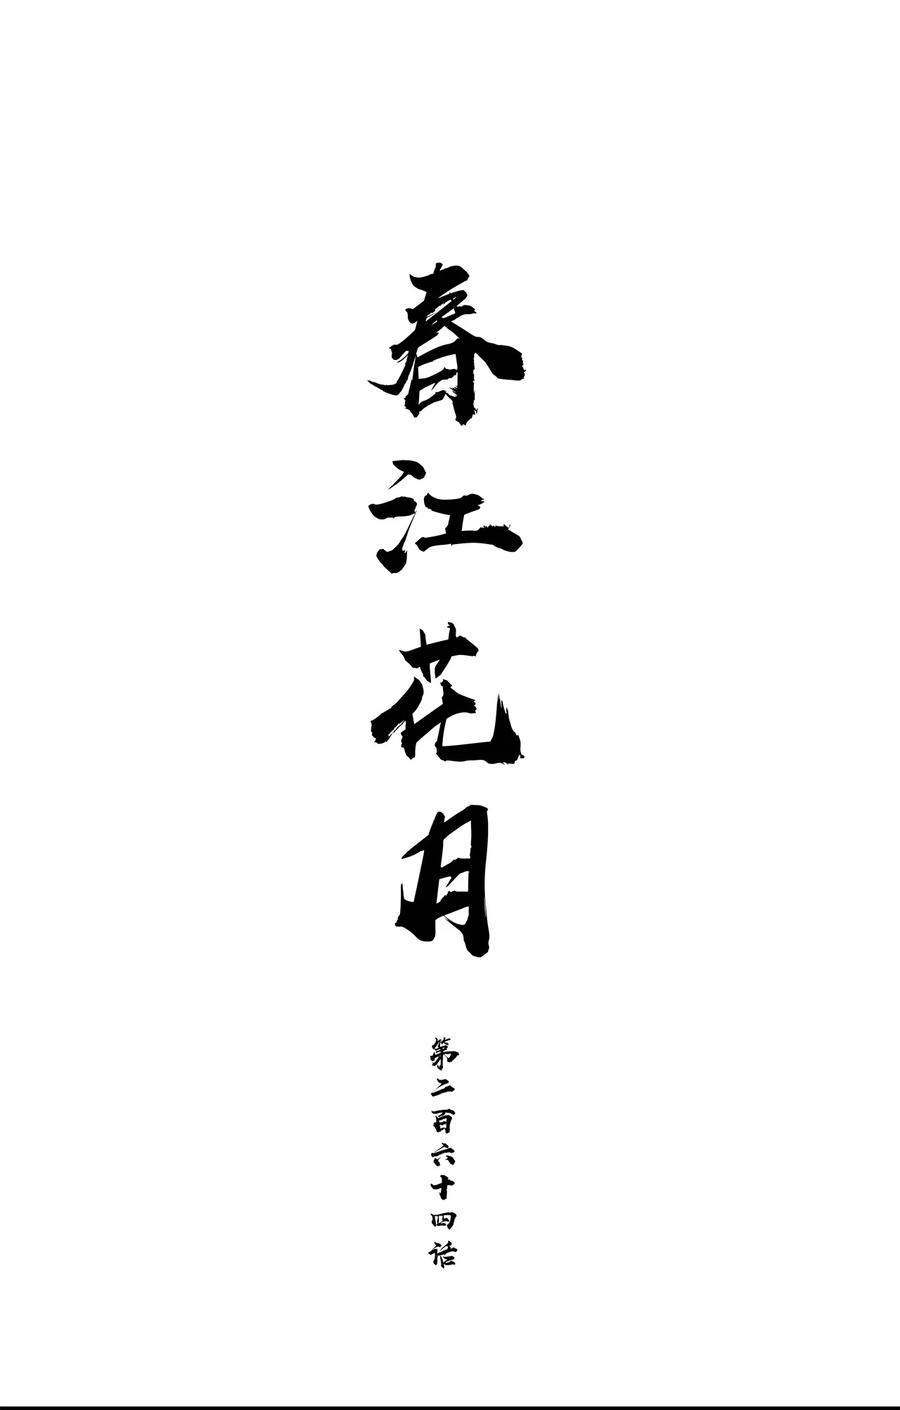 春江花月
第二百六十四话